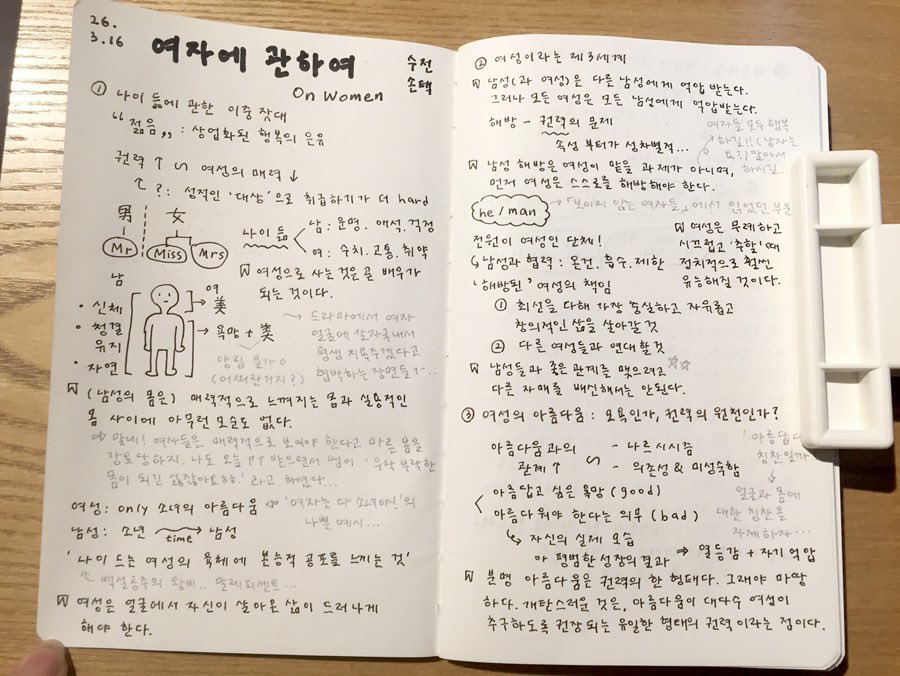 26.
3.16
여자에 관하여
수전
손택
On Women
① 나이 듦에 관한 이중 잣대
“젊음„ : 상업화된 행복의 은유
권력 ↑ ∽ 여성의 매력 ↓
↖ ?: 성적인 '대상'으로 취급하기가 더 hard
男 女
Mr Miss Mrs
나이 듦
남 : 운명. 애석. 걱정
여 : 수치. 고통. 취약
여성으로 사는 것은 곧 배우가
되는 것이다.
남
• 신체
• 청결
유지
• 자연
여
美
욕망 + 美
양립 불가
(어쩌란거지?)
→ 드라마에서 여자
얼굴에 칼자국내서
평생 치욕주겠다고
협박하는 장면들…
(남성의 몸은) 매력적으로 느껴지는 몸과 실용적인
몸 사이에 아무런 모순도 없다.
여자들은 매력적으로 보여야 한다고 마른 몸을
강요당하지. 나도 오늘 PT 받으면서 쌤이 '우락부락한
몸이 되진 않잖아요 하.' 라고 하면…
여성 : only 소녀의 아름다움 ⇦ '여자는 다 소녀야!'의
나쁜 예시…
남성 : 소년 → time 남성
'나이 드는 여성의 육체에 본능적 공포를 느끼는 것'
↖ 백설공주의 왕비.. 말레피센트…
여성은 얼굴에서 자신이 살아온 삶이 드러나게
해야 한다.
② 여성이라는 제3세계
남성(과 여성)은 다른 남성에게 억압 받는다.
그러나 모든 여성은 모든 남성에게 억압받는다.
해방 - 권력의 문제
속성 부터가 성차별적…
여자들 모두 행복
하길!! (남자는
요?) 알아서
하시길.
남성 해방은 여성이 맡을 과제가 아니며,
먼저 여성은 스스로를 해방해야 한다.
he/man → 「보이지 않는 여자들」에서 읽었던 부분
전원이 여성인 단체!
↳ 남성과 협력 : 온건. 흡수. 제한
여성은 무례하고
시끄럽고 '추할' 때
정치적으로 훨씬
유능해질 것이다.
'해방된' 여성의 책임
① 최선을 다해 가장 충실하고 자유롭고
창의적인 삶을 살아갈 것
② 다른 여성들과 연대할 것
남성들과 좋은 관계를 맺으려고
다른 자매를 배신해서는 안된다.
③ 여성의 아름다움 : 모욕인가, 권력의 원천인가?
아름다움과의
관계 ↑
∽
- 나르시시즘
- 의존성 & 미성숙함
'아름답다
칭찬일까
↓
얼굴과 몸에
대한 칭찬을
자제하자…
아름답고 싶은 욕망 (good)
아름다워야 한다는 의무 (bad)
↳ 자신의 실제 모습
평범한 성장의 결과 ⇒ 열등감 + 자기 억압
분명 아름다움은 권력의 한 형태다. 그래야 마땅
하다. 개탄스러운 것은, 아름다움이 대다수 여성이
추구하도록 권장되는 유일한 형태의 권력이라는 점이다.